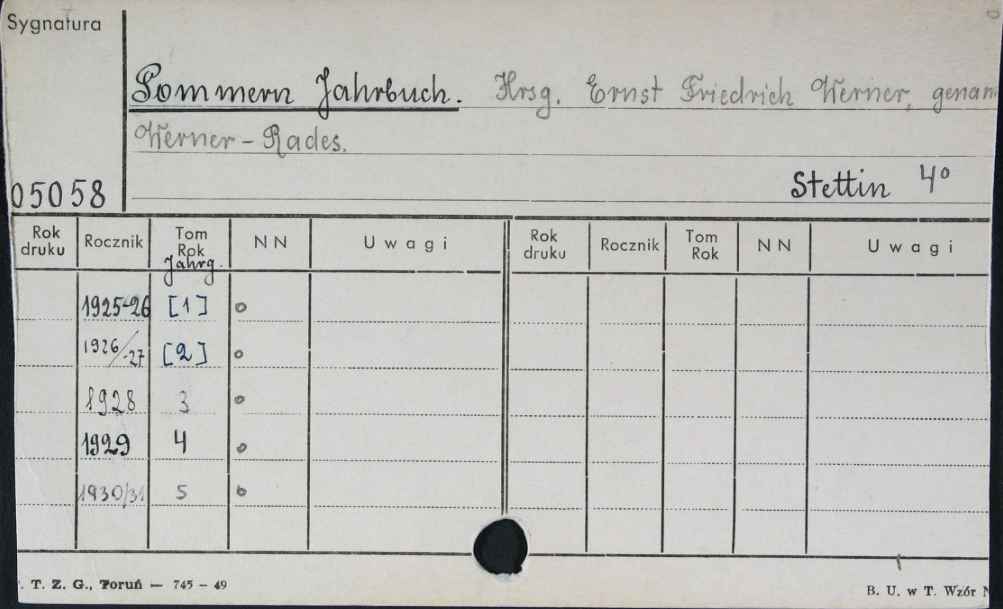 Sygnatura
Pommern Jahrbuch. Hrsg. Ernst Friedrich Werner, genan
Werner-Rades.
Stettin 4°
05058
Rok druku Rocznik Tom Rok NN Uwagi Rok druku Rocznik Tom Rok NN Uwagi
Jahrg.
1925-26 [1] o
1926/-27 [2] o
1928 3 o
1929 4 o
1930/31 5 o
. T. Z. G., Toruń — 745 – 49
B. U. w T. Wzór N